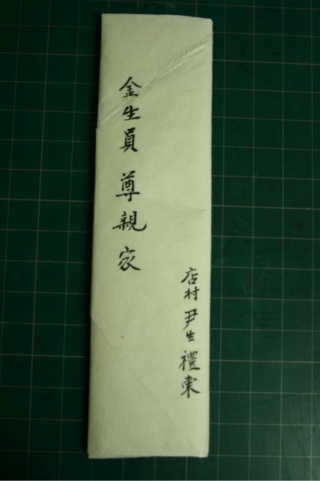 金生員 尊親家
店村 尹生 禮東